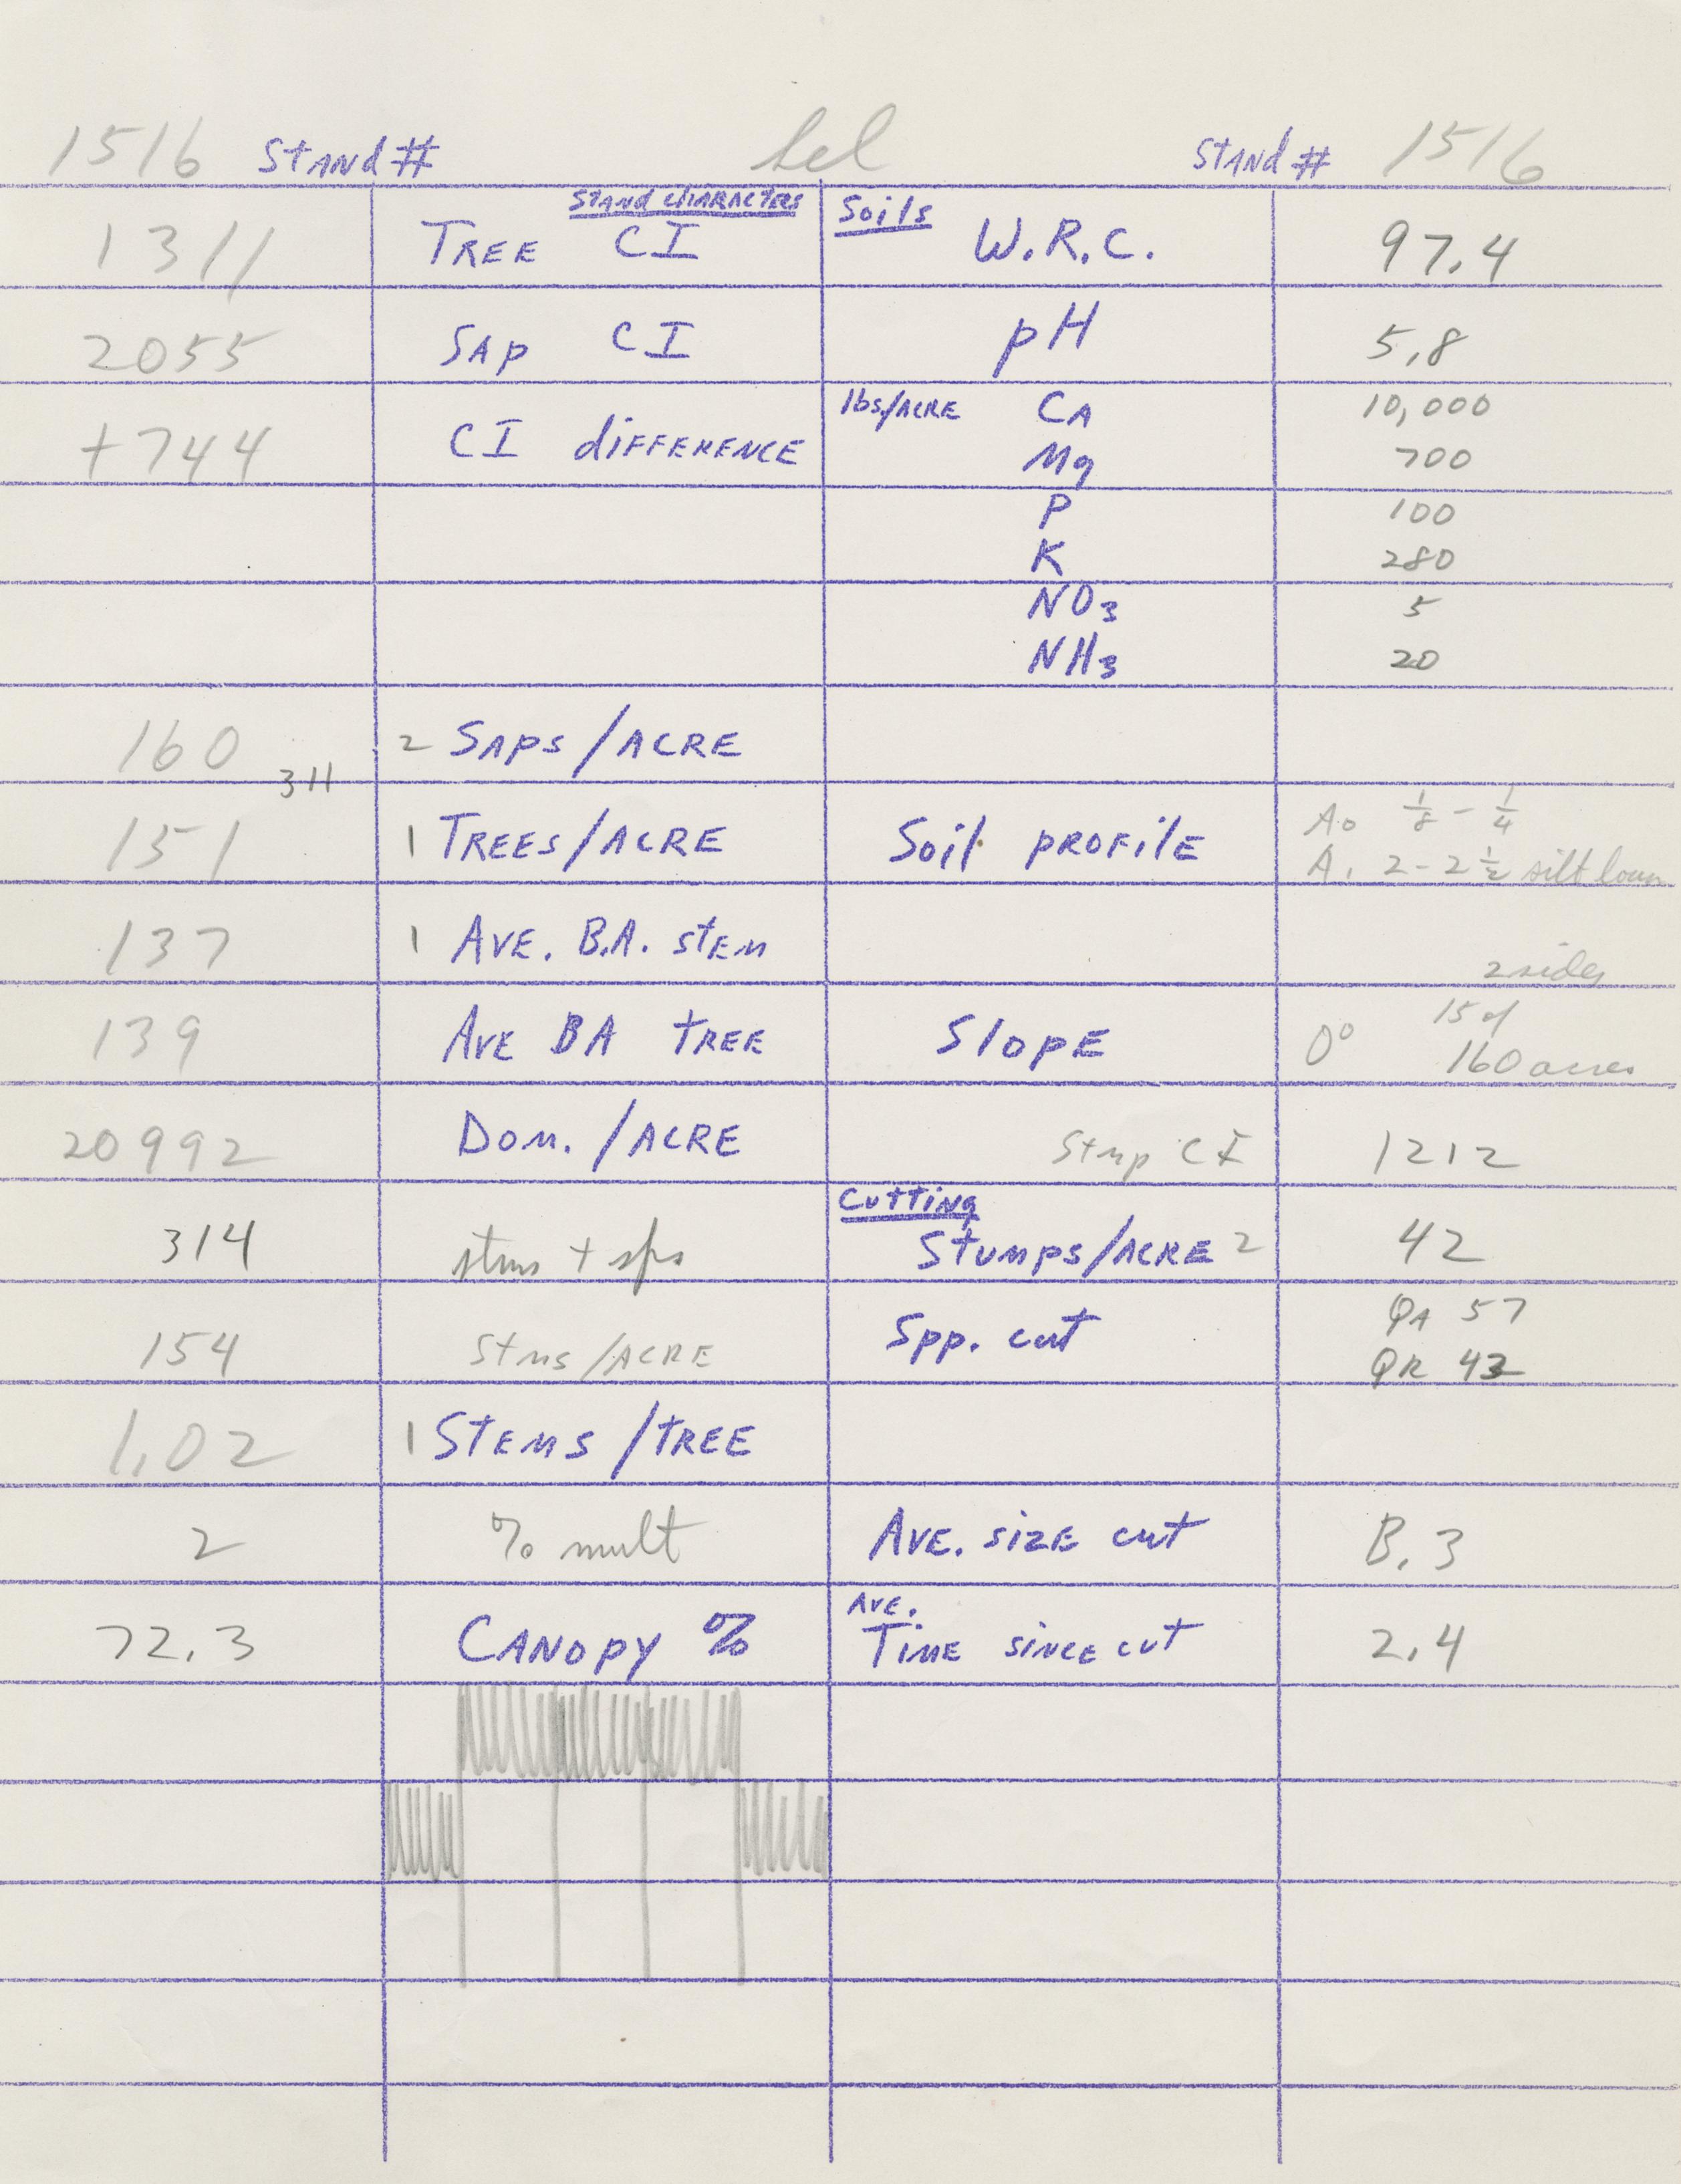 1516 Stand # Sel Stand # 1516
Stand Characters Soils
1311 Tree CI W.R.C. 97.4
2055 Sap CI pH 5.8
lbs/Acre Ca 10,000
+744 CI difference Mg 700
P 100
K 280
NO3 5
NH3 20
160 2 Saps/Acre
311
151 1 Trees/Acre Soil profile Ao 1/8 - 1/4
A1 2 - 2 1/2 silt loam
137 1 Ave. B.A. stem
2 sides
139 Ave BA tree Slope 0° 15 of
160 acres
20992 Dom. /Acre Stmp CI 1212
Cutting
314 stms + sps Stumps/Acre 2 42
154 Stms/Acre Spp. cut QA 57
QR 43
1.02 1 Stems/tree
2 % mult Ave. size cut B.3
72.3 Canopy % Ave. Time since cut 2.4